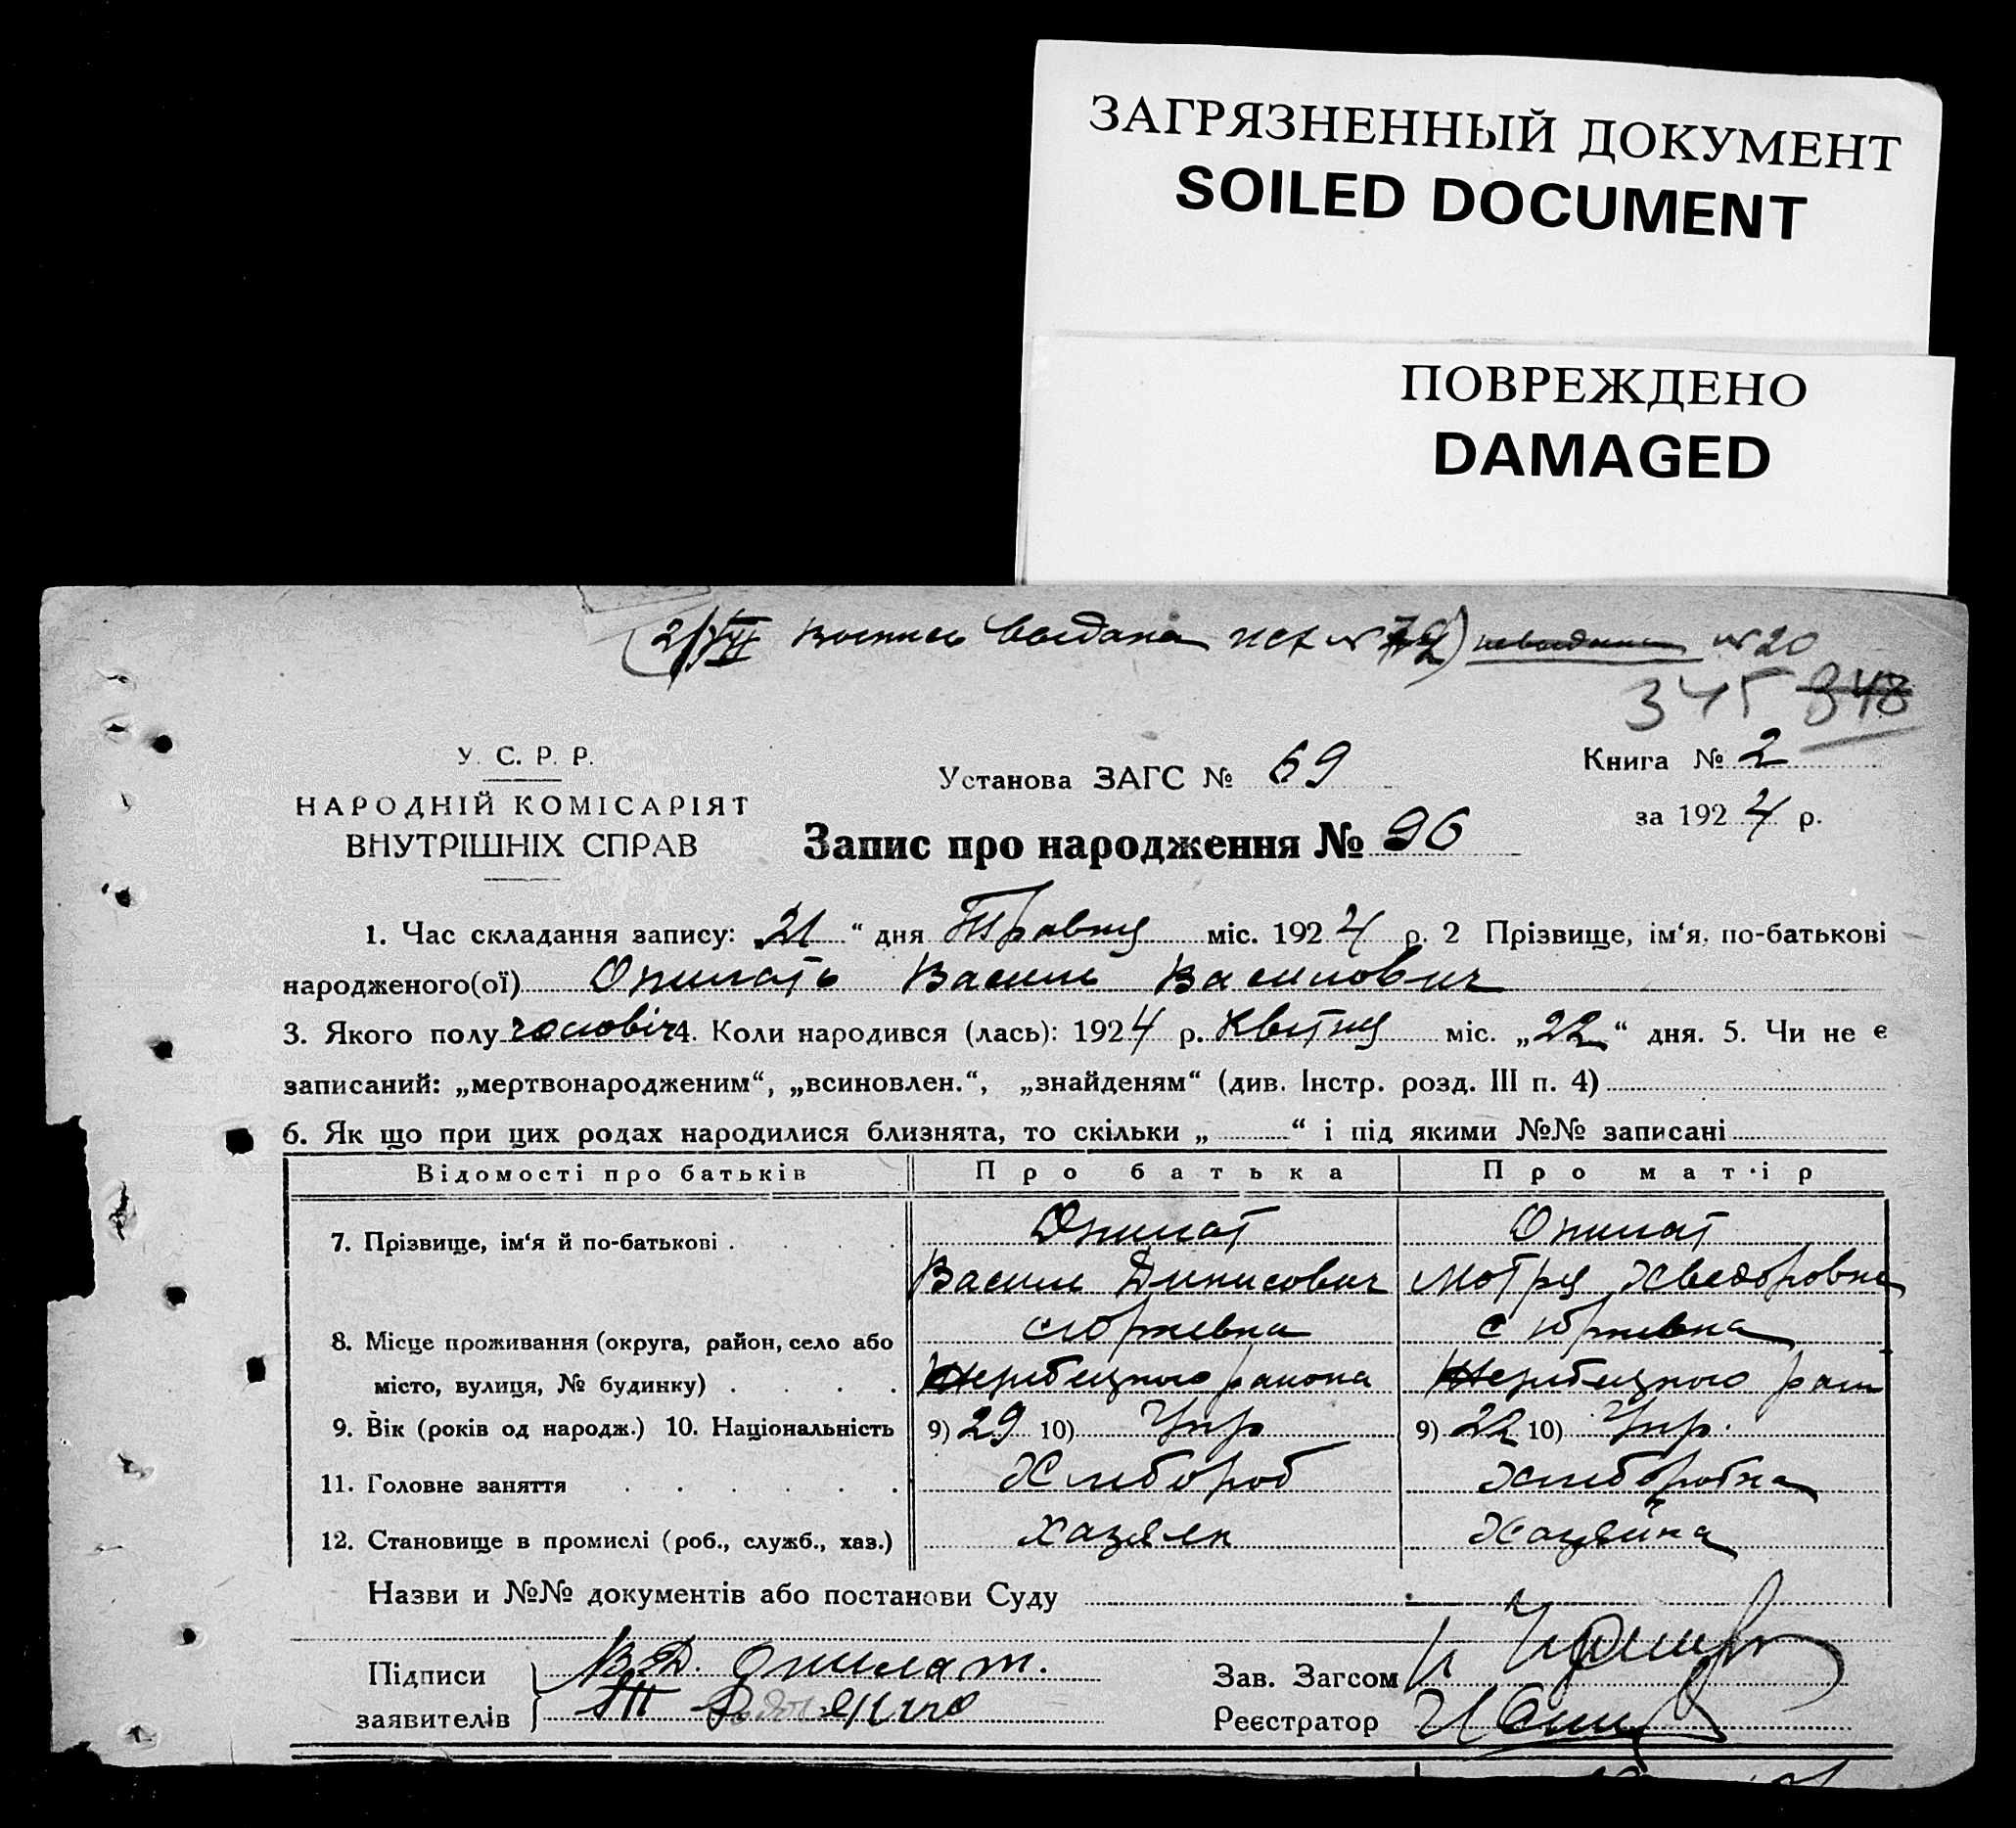 ЗАГРЯЗНЕННЫЙ ДОКУМЕНТ
SOILED DOCUMENT
ПОВРЕЖДЕНО
DAMAGED
выдана № 20
345 348
У. С. Р. Р.
НАРОДНІЙ КОМІСАРІЯТ
ВНУТРІШНІХ СПРАВ
Установа ЗАГС № 69
Запис про народження № 96
Книга № 2
за 1924 р.
1. Час складання запису: „21“ дня Травня міс. 1924 р. 2 Прізвище, ім‘я, по-батькові
народженого(ої) Опилать Василь Василович
3. Якого полу чоловіч 4. Коли народився (лась): 1924 р. Квітня міс. „22“ дня. 5. Чи не є
записаний: „мертвонародженим“, „всиновлен.“, „знайденям“ (див. Інстр. розд. III п. 4)
6. Як що при цих родах народилися близнята, то скільки „ “ і під якими №№ записані
Відомості про батьків Про батька Про матір
7. Прізвище, ім‘я й по-батькові . Опилат Опилат
Василь Динисович Мотря Хведоровна
8. Місце проживання (округа, район, село або с Юрьевка с Юрьевка
місто, вулиця, № будинку) района
9. Вік (років од народж.) 10. Національність 9) 29 10) Укр 9) 22 10) Укр.
11. Головне заняття Хлибороб Хлиборобка
12. Становище в промислі (роб., служб., хаз.) хазяин Хазяйка
Назви и №№ документів або постанови Суду
Підписи В. Д. Опилат.
заявителів
Зав. Загсом
Реєстратор